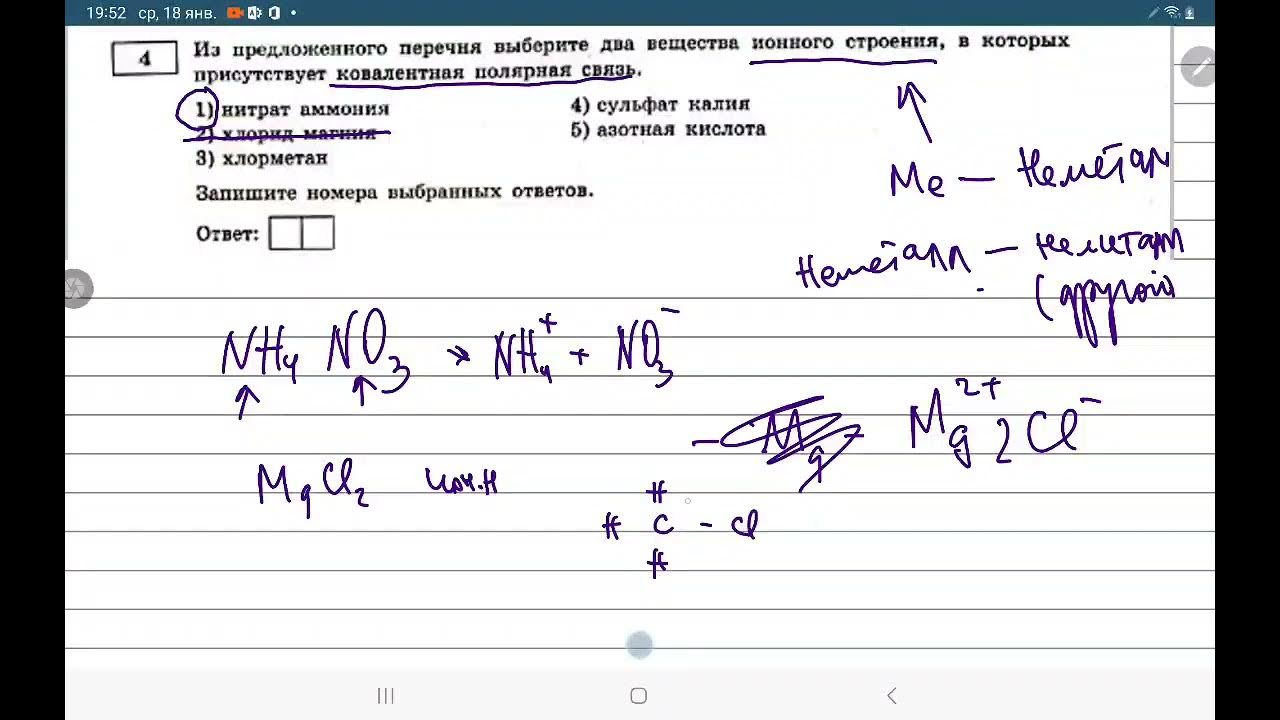 19:52 ср, 18 янв.
4
Из предложенного перечня выберите два вещества ионного строения, в которых
присутствует ковалентная полярная связь.
1) нитрат аммония
2) хлорид магния
3) хлорметан
4) сульфат калия
5) азотная кислота
Запишите номера выбранных ответов.
Ответ:
Me — Неметалл
Неметалл — неметалл
(другой)
NH₄ NO₃ → NH₄⁺ + NO₃⁻
Mg
Mg²⁺ 2Cl⁻
MgCl₂ ион.н
H
H C - Cl
H